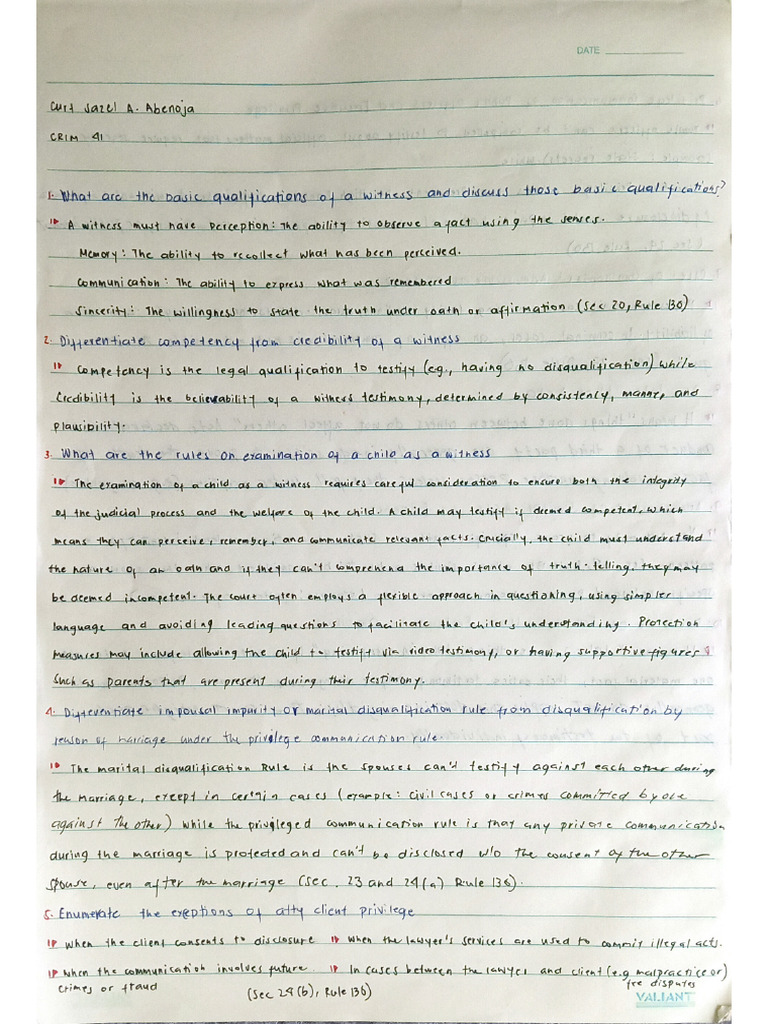 DATE
Curt Jazel A. Abenoja
CRIM 41
1. What are the basic qualifications of a witness and discuss those basic qualifications?
A witness must have perception: The ability to observe a fact using the senses.
Memory: The ability to recollect what has been perceived.
Communication: The ability to express what was remembered
Sincerity: The willingness to state the truth under oath or affirmation (Sec 20, Rule 130)
2. Differentiate competency from credibility of a witness
Competency is the legal qualification to testify (e.g., having no disqualification) while
Credibility is the believability of a witness testimony, determined by consistency, manner, and
plausibility.
3. What are the rules on examination of a child as a witness
The examination of a child as a witness requires careful consideration to ensure both the integrity
of the judicial process and the welfare of the child. A child may testify if deemed competent, which
means they can perceive, remember, and communicate relevant facts. Crucially, the child must understand
the nature of an oath and if they can't comprehend the importance of truth-telling, they may
be deemed incompetent. The court often employs a flexible approach in questioning, using simpler
language and avoiding leading questions to facilitate the child's understanding. Protection
measures may include allowing the child to testify via video testimony, or having supportive figures
such as parents that are present during their testimony.
4. Differentiate impousal impurity or marital disqualification rule from disqualification by
reason of marriage under the privilege communication rule.
The marital disqualification Rule is the spouses can't testify against each other during
the marriage, except in certain cases (example: civil cases or crimes committed by one
against the other) while the privileged communication rule is that any private communication
during the marriage is protected and can't be disclosed w/o the consent of the other
spouse, even after the marriage (Sec, 23 and 24 (a) Rule 130).
5. Enumerate the exeptions of atty client privilege
when the client consents to disclosure when the lawyer's services are used to commit illegal acts.
when the communication involves future In cases between the lawyer and client (e.g malpractice or)
crimes or fraud (Sec 24 (b), Rule 130) fee disputes
VALIANT